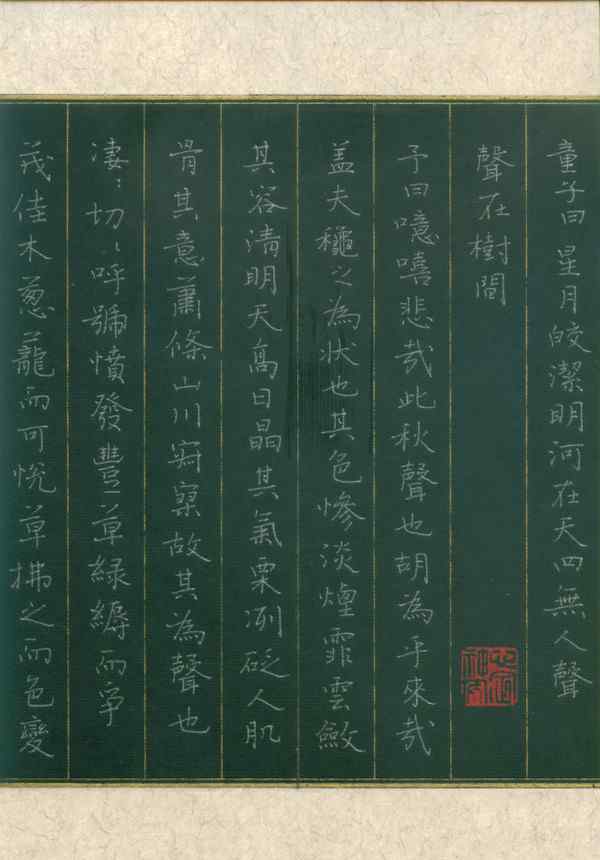 童子曰星月皎潔明河在天四無人聲
聲在樹間
予曰噫嘻悲哉此秋聲也胡為乎來哉
盖夫穐之為狀也其色慘淡煙霏雲斂
其容清明天高日晶其氣栗冽砭人肌
骨其意蕭條山川寂寥故其為聲也
凄〻切〻呼號憤發豐草綠縟而爭
茂佳木葱蘢而可悅草拂之而色變